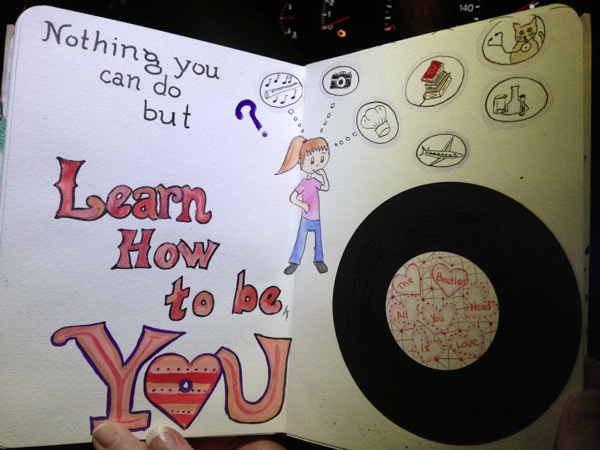 Nothing you
can do
but
?
Learn
How
to be
YOU
The Beatles
All You Need
Is Love
140